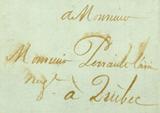 a Monsieur
Monsieur Perrault l'ainé
Negt.
à Quebec